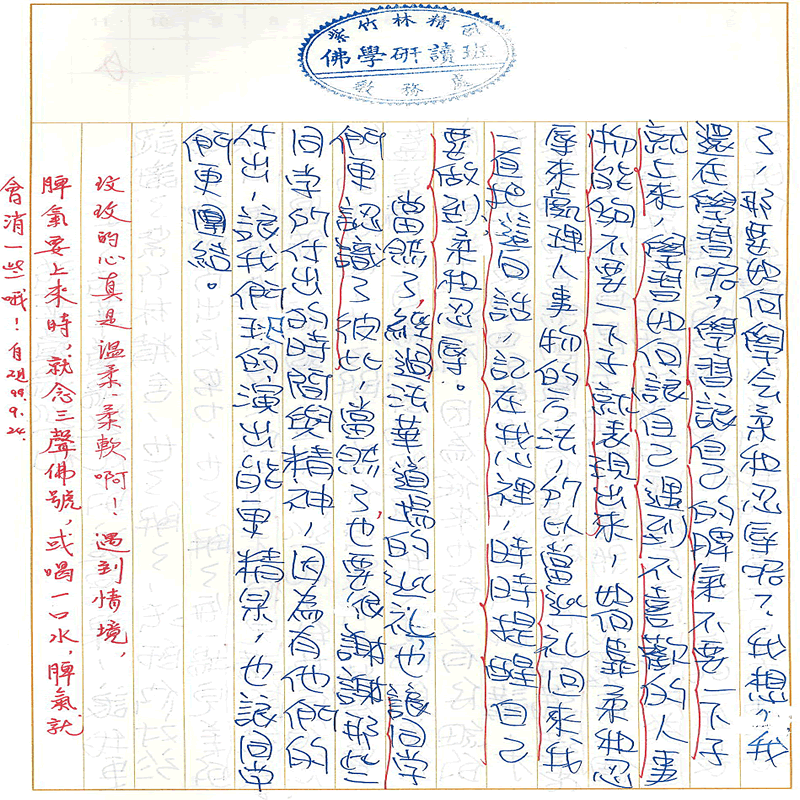 紫竹林精舍
佛學研讀班
教務處
了，那要如何學会柔和忍辱呢？我想，我
還在學習呢，學習讓自己的脾氣不要一下子
就上來，學習如何讓自己遇到不喜歡的人事
物能夠不要一下子就表現出來，如何靠柔和忍
辱來處理人事物的方法，所以當巡礼回來我
一直把這句話，記在我心裡，時時提醒自己
要做到柔和忍辱。
當然了，經過法華道場的巡礼，也讓同學
們更認識了彼此，當然了，也要很謝謝那些
同学的付出的時間與精神，因為有他們的
付出，讓我們班的演出能更精采，也讓同學
們更團結。
玟玟的心真是溫柔、柔軟啊！遇到情境，
脾氣要上來時，就念三聲佛號，或喝一口水，脾氣就
會消一些哦！自珽99.9.24.